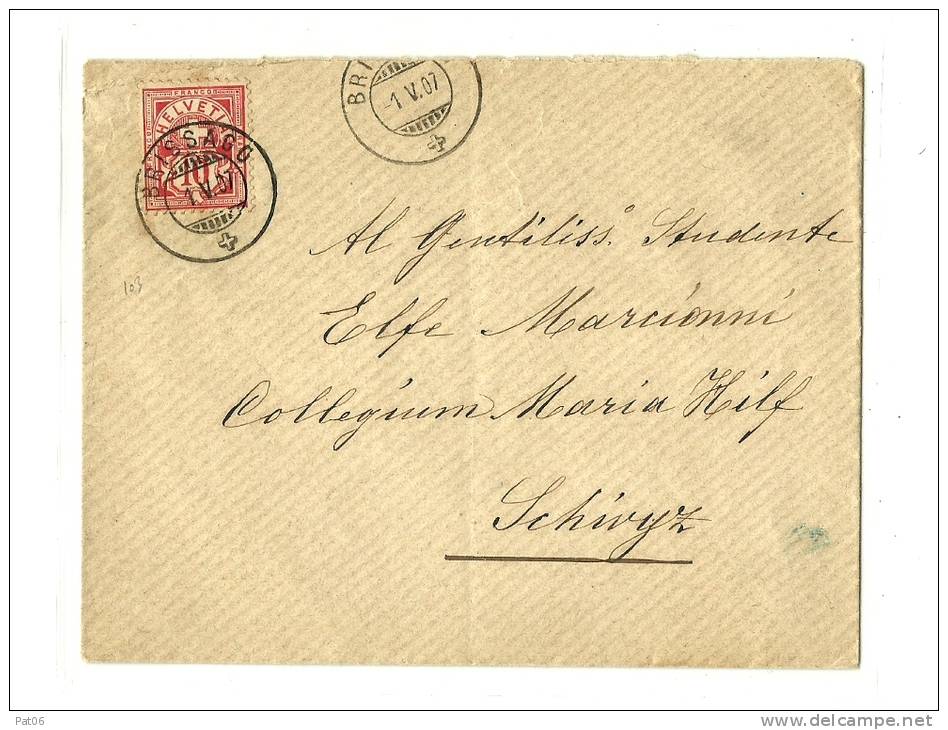 FRANCO
HELVETI
10
BRISSAGO
1 V. 07
BRI
-1 V. 07
103
Al Gentiliss.º Studente
Elfe Marcionni
Collegium Maria Hilf
Schwyz
Pat06
www.delcampe.net